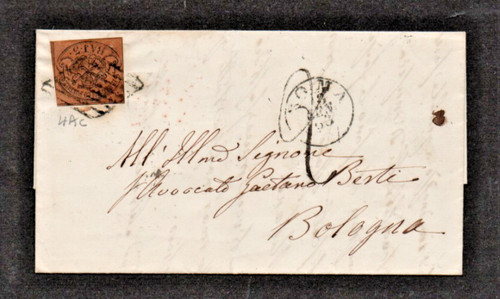 ROMA
4AC
All' Illmo Signore
l'Avvocato Gaetano Berti
Bologna